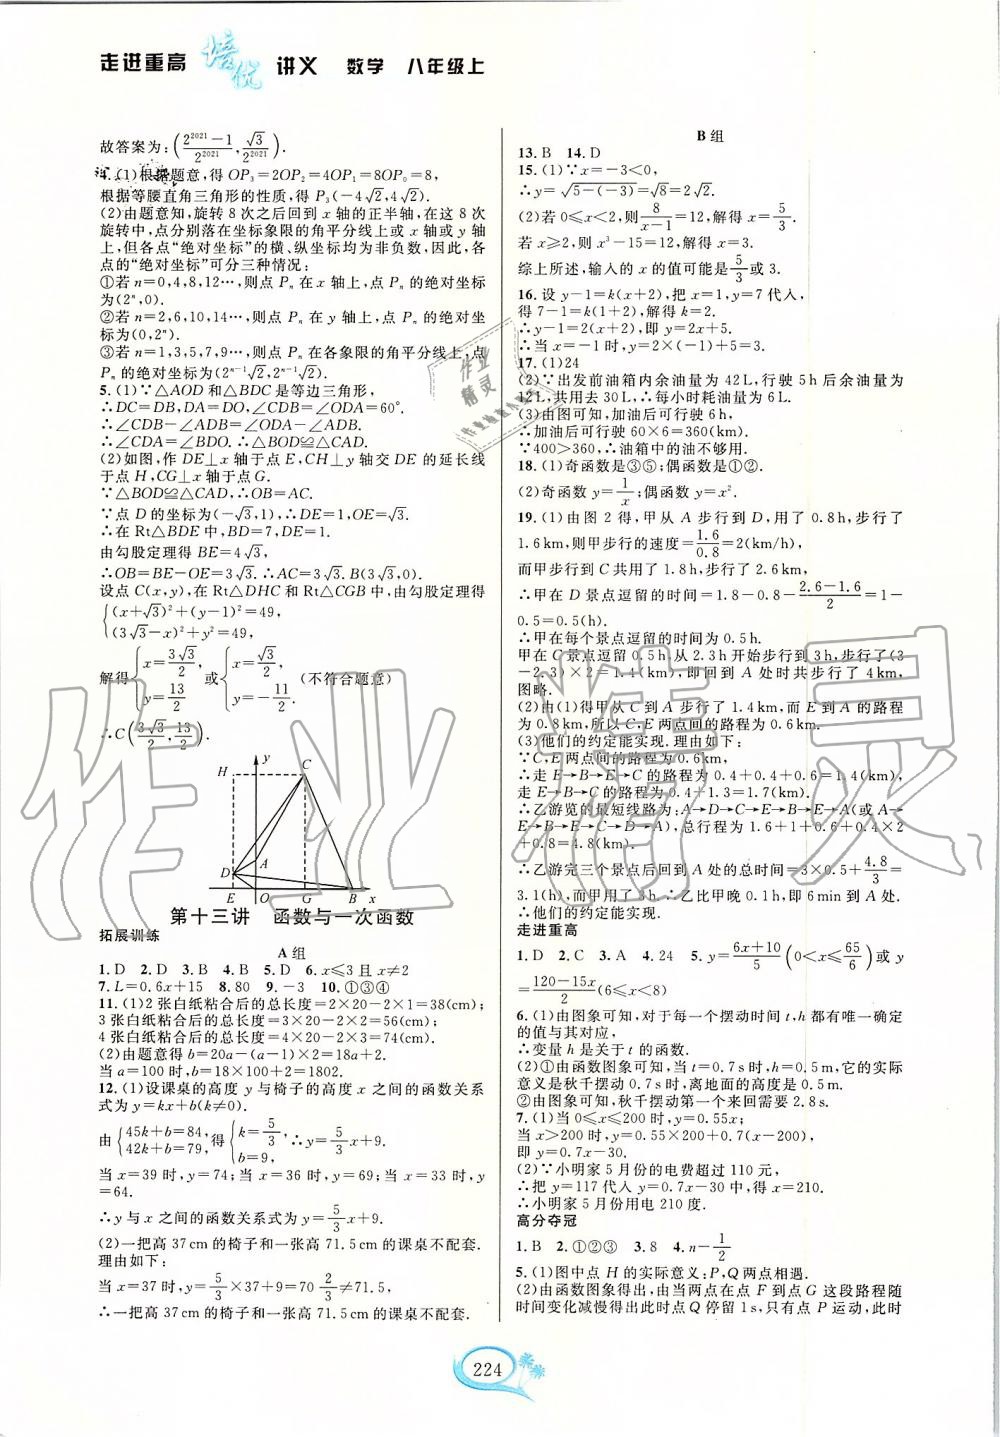 走进重高 培优 讲义 数学 八年级上
故答案为:(2^2021-1/2^2021,√3/2^2021).
4.(1)根据题意,得OP₃=2OP₂=4OP₁=8OP₀=8,
根据等腰直角三角形的性质,得P₃(-4√2,4√2).
(2)由题意知,旋转8次之后回到x轴的正半轴,在这8次
旋转中,点分别落在坐标象限的角平分线上或x轴或y轴
上,但各点“绝对坐标”的横、纵坐标均为非负数,因此,各
点的“绝对坐标”可分三种情况:
①若n=0,4,8,12…,则点Pₙ在x轴上,点Pₙ的绝对坐标
为(2ⁿ,0).
②若n=2,6,10,14…,则点Pₙ在y轴上,点Pₙ的绝对坐
标为(0,2ⁿ).
③若n=1,3,5,7,9…,则点Pₙ在各象限的角平分线上,点
Pₙ的绝对坐标为(2ⁿ⁻¹√2,2ⁿ⁻¹√2).
5.(1)∵△AOD和△BDC是等边三角形,
∴DC=DB,DA=DO,∠CDB=∠ODA=60°.
∴∠CDB-∠ADB=∠ODA-∠ADB.
∴∠CDA=∠BDO.∴△BOD≌△CAD.
(2)如图,作DE⊥x轴于点E,CH⊥y轴交DE的延长线
于点H,CG⊥x轴于点G.
∵△BOD≌△CAD,∴OB=AC.
∵点D的坐标为(-√3,1),∴DE=1,OE=√3.
∴在Rt△BDE中,BD=7,DE=1.
由勾股定理得BE=4√3,
∴OB=BE-OE=3√3.∴AC=3√3.
设点C(x,y),在Rt△DHC和Rt△CGB中,由勾股定理得
{(x+√3)²+(y-1)²=49,
(3√3-x)²+y²=49,
解得{x=3√3/2, y=13/2 或{x=√3/2, y=-11/2 (不符合题意)
∴C(3√3/2,13/2).
y
H
C
A
D
E O G B x
第十三讲 函数与一次函数
拓展训练
A组
1.D 2.D 3.B 4.B 5.D 6.x≤3且x≠2
7.L=0.6x+15 8.80 9.-3 10.①③④
11.(1)2张白纸粘合后的总长度=2×20-2×1=38(cm);
3张白纸粘合后的总长度=3×20-2×2=56(cm);
4张白纸粘合后的总长度=4×20-2×3=74(cm).
(2)由题意得b=20a-(a-1)×2=18a+2.
当a=100时,b=18×100+2=1802.
12.(1)设课桌的高度y与椅子的高度x之间的函数关系
式为y=kx+b(k≠0).
由{45k+b=84, 42k+b=79, 得{k=5/3, b=9, ∴y=5/3x+9.
当x=39时,y=74;当x=36时,y=69;当x=33时,y
=64.
∴y与x之间的函数关系式为y=5/3x+9.
(2)一把高37cm的椅子和一张高71.5cm的课桌不配套.
理由如下:
当x=37时,y=5/3×37+9=70 2/3≠71.5,
∴一把高37cm的椅子和一张高71.5cm的课桌不配套.
B组
13.B 14.D
15.(1)∵x=-3<0,
∴y=√5-(-3)=√8=2√2.
(2)若0≤x<2,则8/x-1=12,解得x=5/3.
若x≥2,则x³-15=12,解得x=3.
综上所述,输入的x的值可能是5/3或3.
16.设y-1=k(x+2),把x=1,y=7代人,
得7-1=k(1+2),解得k=2.
∴y-1=2(x+2),即y=2x+5.
∴当x=-1时,y=-2+5=3.
17.(1)24
(2)∵出发前油箱内余油量为42L,行驶5h后余油量为
12L,共用去30L,∴每小时耗油量为6L.
(3)由图可知,加油后可行驶6h,
∴加油后可行驶60×6=360(km).
∵400>360,∴油箱中的油不够用.
18.(1)奇函数是③⑤;偶函数是①②.
(2)奇函数y=1/x;偶函数y=x².
19.(1)由图2得,甲从A步行到D,用了0.8h,步行了
1.6km,则甲步行的速度=1.6/0.8=2(km/h)
而甲步行到C共用了1.8h,步行了2.6km.
∴甲在D景点逗留的时间=1.8-0.8-2.6-1.6/2=1-
0.5=0.5(h).
∴甲在每个景点逗留的时间为0.5h.
甲在C景点逗留0.5h,从2.3h开始步行到3h,步行了(3
-2.3)×2=1.4(km),即回到A处时共步行了4km,
图略.
(2)由(1)得甲从C到A步行了1.4km,而E到A的路程
为0.8km,所以C,E两点间的路程为0.6km.
(3)他们的约定能实现.理由如下:
∵C,E两点间的路程为0.6km,
∴走E→B→E→C的路程为0.4+0.4+0.6=1.4(km),
走E→B→C的路程为0.4+1.3=1.7(km).
∴乙游览的最短线路为:A→D→C→E→B→E→A(或A→
E→B→E→C→D→A),总行程为1.6+1+0.6+0.4×2
+0.8=4.8(km).
∴乙游完三个景点后回到A处的总时间=3×0.5+4.8/3=
3.1(h),而甲用了3h.∴乙比甲晚0.1h,即6min.
∴他们的约定能实现.
走进重高
1.D 2.C 3.A 4.24 5.y=6x+10/5(0<x≤65/6)或y
=120-15x/2(6≤x<8)
6.(1)由图象可知,对于每一个摆动时间t,h都有唯一确定
的值与其对应,
∴变量h是关于t的函数.
(2)①由函数图象可知,当t=0.7s时,h=0.5m,它的实际
意义是秋千摆动0.7s时,离地面的高度是0.5m.
②由图象可知,秋千摆动第一个来回需要2.8s.
7.(1)当0≤x≤200时,y=0.55x;
当x>200时,y=0.55×200+0.7(x-200),
即y=0.7x-30.
(2)∵小明家5月份的电费超过110元,
∴把y=117代入y=0.7x-30中,得x=210.
∴小明家5月份用电210度.
高分夺冠
1.B 2.①②③ 3.8 4.n-1/2
5.(1)图中点H的实际意义:P,Q两点相遇.
(2)由函数图象得出,由当两点在点F到点G这段路程随
时间变化减慢得出此时点Q停留1s,只有点P运动,此时
224
作业精灵